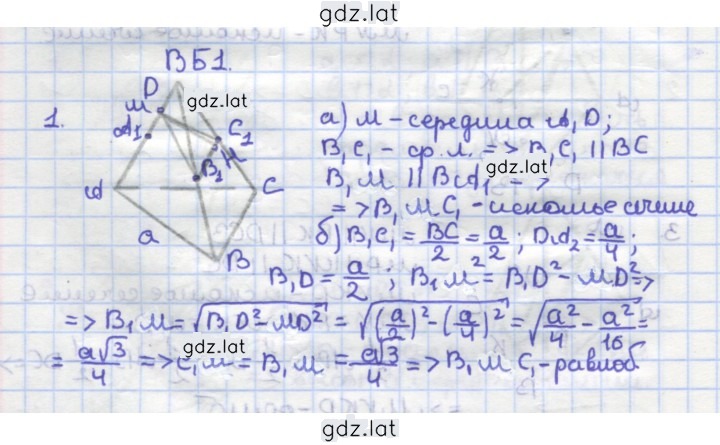 gdz.lat
ВБ1.
D
gdz.lat
М
1.
A₁
C₁
H
B₁
A
C
a
B
а) М - середина A₁D;
B₁C₁ - ср. л. => B₁C₁ || BC
gdz.lat
B₁M || BA₁ =>
=> B₁MC₁ - искомое сечение
б) B₁C₁ = BC/2 = a/2; DA₂ = a/4;
B₁D = a/2; B₁M² = B₁D² - MD² =>
=> B₁M = √(B₁D² - MD²) = √((a/2)² - (a/4)²) = √(a²/4 - a²/16) =
= a√3/4 => C₁M = B₁M = a√3/4 => B₁MC₁ - равноб
gdz.lat
gdz.lat